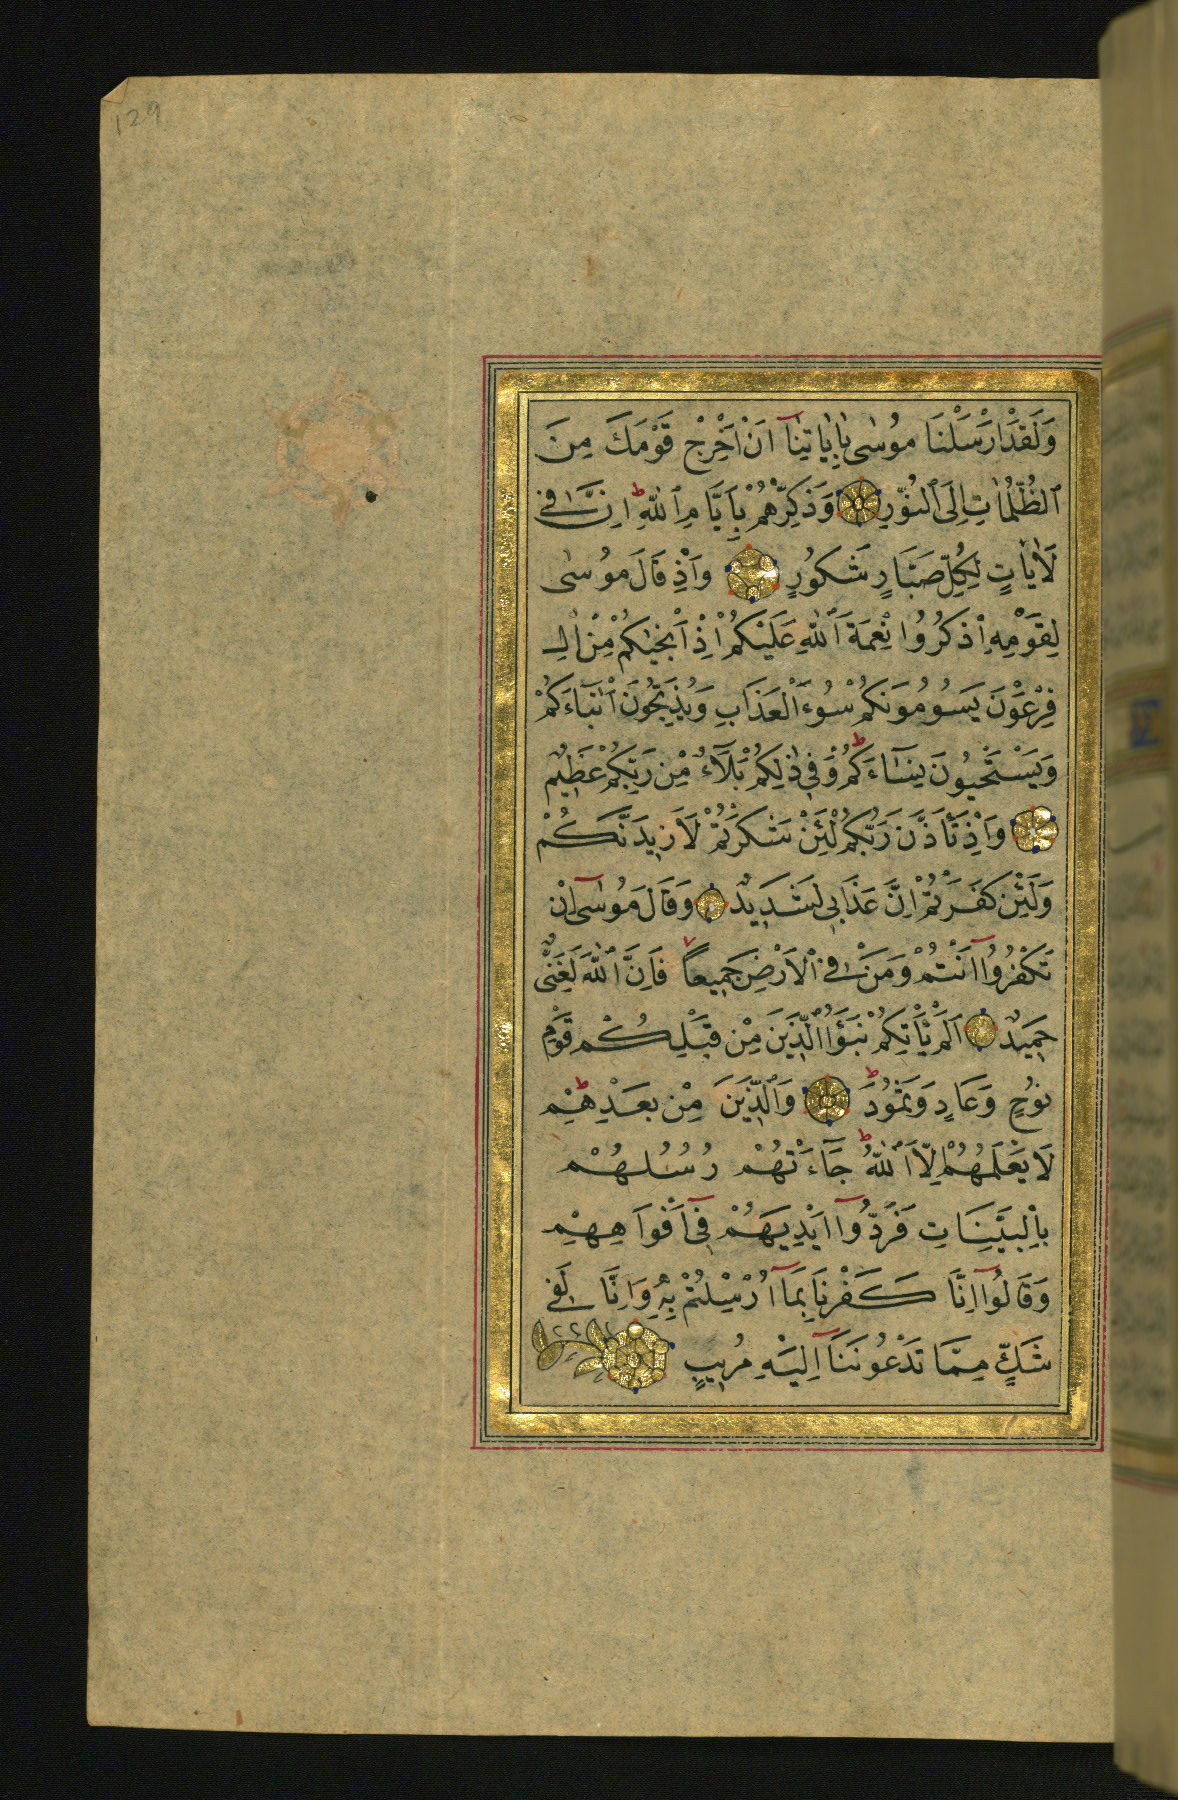 129
وَلَقَدْ اَرْسَلْنَا مُوسٰى بِاٰيَاتِنَٓا اَنْ اَخْرِجْ قَوْمَكَ مِنَ
ٱلظُّلُمَاتِ اِلَى ٱلنُّورِ وَذَكِّرْهُمْ بِاَيَّامِ ٱللّٰهِ ط اِنَّ فِى
لَاٰيَاتٍ لِكُلِّ صَبَّارٍ شَكُورٍ وَاِذْ قَالَ مُوسٰى
لِقَوْمِهِ ٱذْكُرُوا نِعْمَةَ ٱللّٰهِ عَلَيْكُمْ اِذْ اَنْجٰيكُمْ مِنْ اٰلِ
فِرْعَوْنَ يَسُومُونَكُمْ سُوءَ ٱلْعَذَابِ وَيُذَبِّحُونَ اَبْنَاءَكُمْ
وَيَسْتَحْيُونَ نِسَٓاءَكُمْ ط وَفِى ذٰلِكُمْ بَلَٓاءٌ مِنْ رَبِّكُمْ عَظِيمٌ
وَاِذْ تَاَذَّنَ رَبُّكُمْ لَئِنْ شَكَرْتُمْ لَاَزِيدَنَّكُمْ
وَلَئِنْ كَفَرْتُمْ اِنَّ عَذَابِى لَشَدِيدٌ وَقَالَ مُوسٰٓى اِنْ
تَكْفُرُٓوا اَنْتُمْ وَمَنْ فِى ٱلْاَرْضِ جَمِيعًا فَاِنَّ ٱللّٰهَ لَغَنِىٌّ
حَمِيدٌ اَلَمْ يَأْتِكُمْ نَبَؤُا ٱلَّذِينَ مِنْ قَبْلِكُمْ قَوْمِ
نُوحٍ وَعَادٍ وَثَمُودَ ط وَٱلَّذِينَ مِنْ بَعْدِهِمْ ط
لَا يَعْلَمُهُمْ اِلَّا ٱللّٰهُ ط جَٓاءَتْهُمْ رُسُلُهُمْ
بِٱلْبَيِّنَاتِ فَرَدُّٓوا اَيْدِيَهُمْ فِٓى اَفْوَاهِهِمْ
وَقَالُٓوا اِنَّا كَفَرْنَا بِمَٓا اُرْسِلْتُمْ بِهِ وَاِنَّا لَفِى
شَكٍّ مِمَّا تَدْعُونَنَٓا اِلَيْهِ مُرِيبٍ